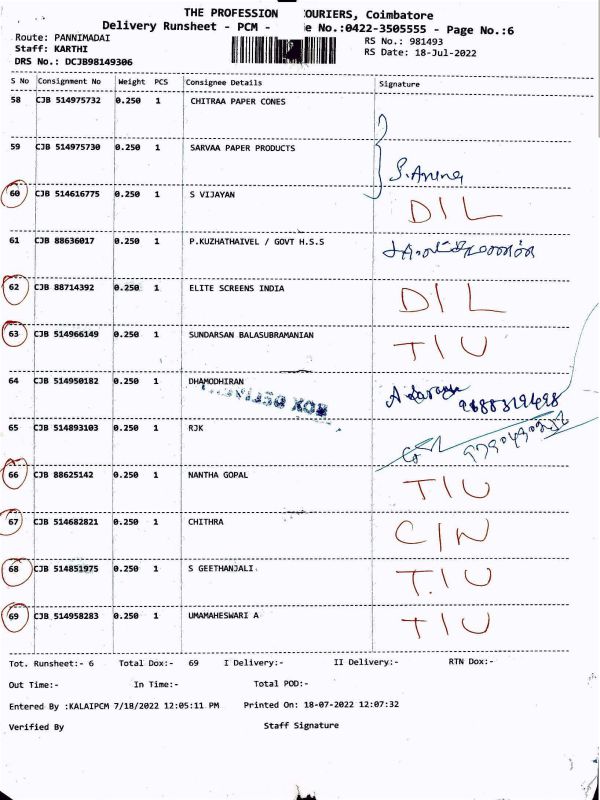 THE PROFESSION OURIERS, Coimbatore
Delivery Runsheet - PCM - e No.:0422-3505555 - Page No.:6
Route: PANNIMADAI RS No.: 981493
Staff: KARTHI RS Date: 18-Jul-2022
DRS No.: DCJB98149306
S No Consignment No Weight PCS Consignee Details Signature
58 CJB 514975732 0.250 1 CHITRAA PAPER CONES
59 CJB 514975730 0.250 1 SARVAA PAPER PRODUCTS
60 CJB 514616775 0.250 1 S VIJAYAN D I L
61 CJB 88636017 0.250 1 P.KUZHATHAIVEL / GOVT H.S.S
62 CJB 88714392 0.250 1 ELITE SCREENS INDIA D I L
63 CJB 514966149 0.250 1 SUNDARSAN BALASUBRAMANIAN T I U
64 CJB 514950182 0.250 1 DHAMODHIRAN
65 CJB 514893103 0.250 1 RJK
66 CJB 88625142 0.250 1 NANTHA GOPAL T I U
67 CJB 514682821 0.250 1 CHITHRA C I N
68 CJB 514851975 0.250 1 S GEETHANJALI. T.I U
69 CJB 514958283 0.250 1 UMAMAHESWARI A T I U
Tot. Runsheet:- 6 Total Dox:- 69 I Delivery:- II Delivery:- RTN Dox:-
Out Time:- In Time:- Total POD:-
Entered By :KALAIPCM 7/18/2022 12:05:11 PM Printed On: 18-07-2022 12:07:32
Verified By Staff Signature